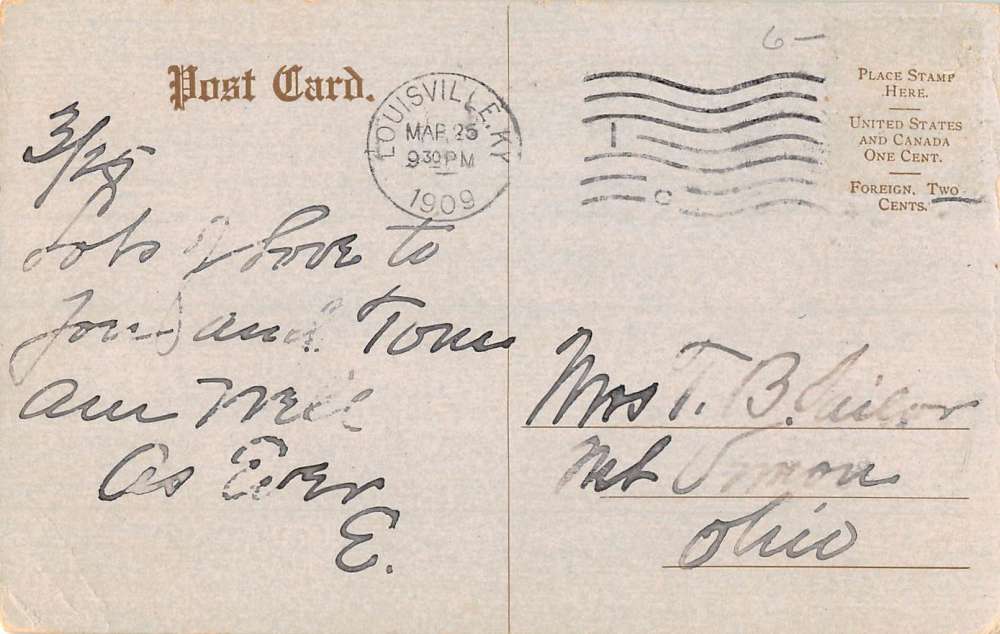 Post Card.
3/25
Lots of love to
you and Tom
am well
As Ever
E.
LOUISVILLE. KY
MAR 25
9 30 PM
1909
1
C
6 –
PLACE STAMP
HERE.
UNITED STATES
AND CANADA
ONE CENT.
FOREIGN, TWO
CENTS.
Mrs T. B.
Mt
Ohio